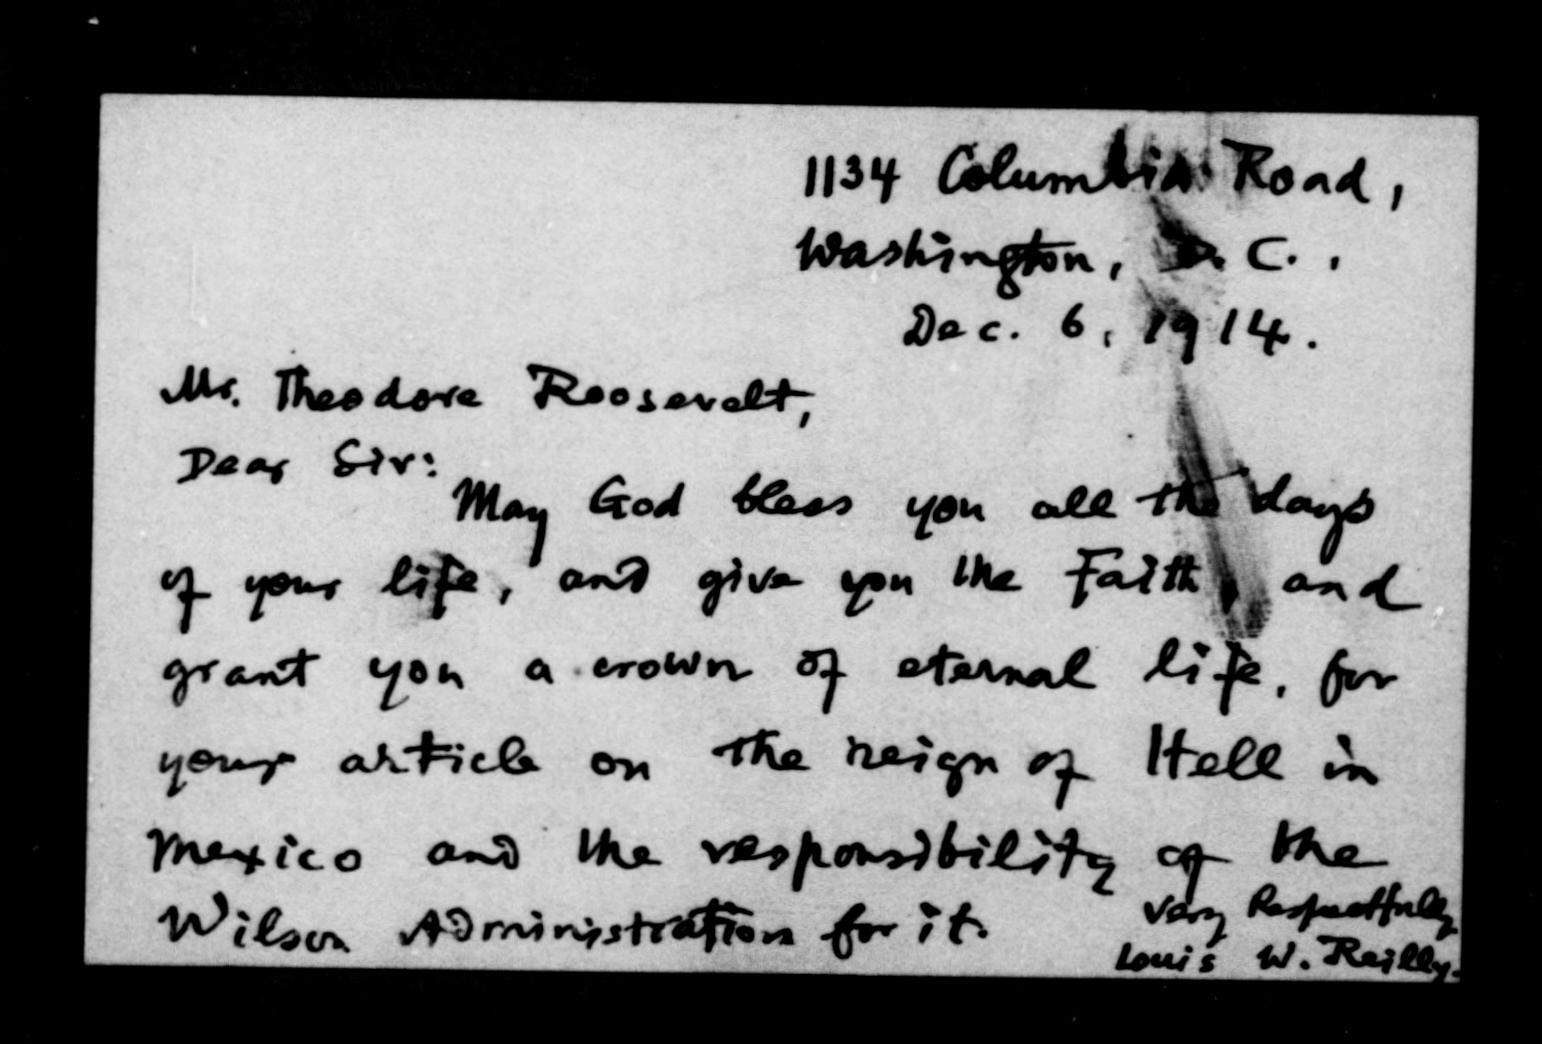 1134 Columbia Road,
Washington, D. C.,
Dec. 6, 1914.
Mr. Theodore Roosevelt,
Dear Sir:
May God bless you all the days
of your life, and give you the Faith, and
grant you a crown of eternal life, for
your article on the reign of Hell in
Mexico and the responsibility of the
Wilson Administration for it.
Very Respectfully
Louis W. Reilly.